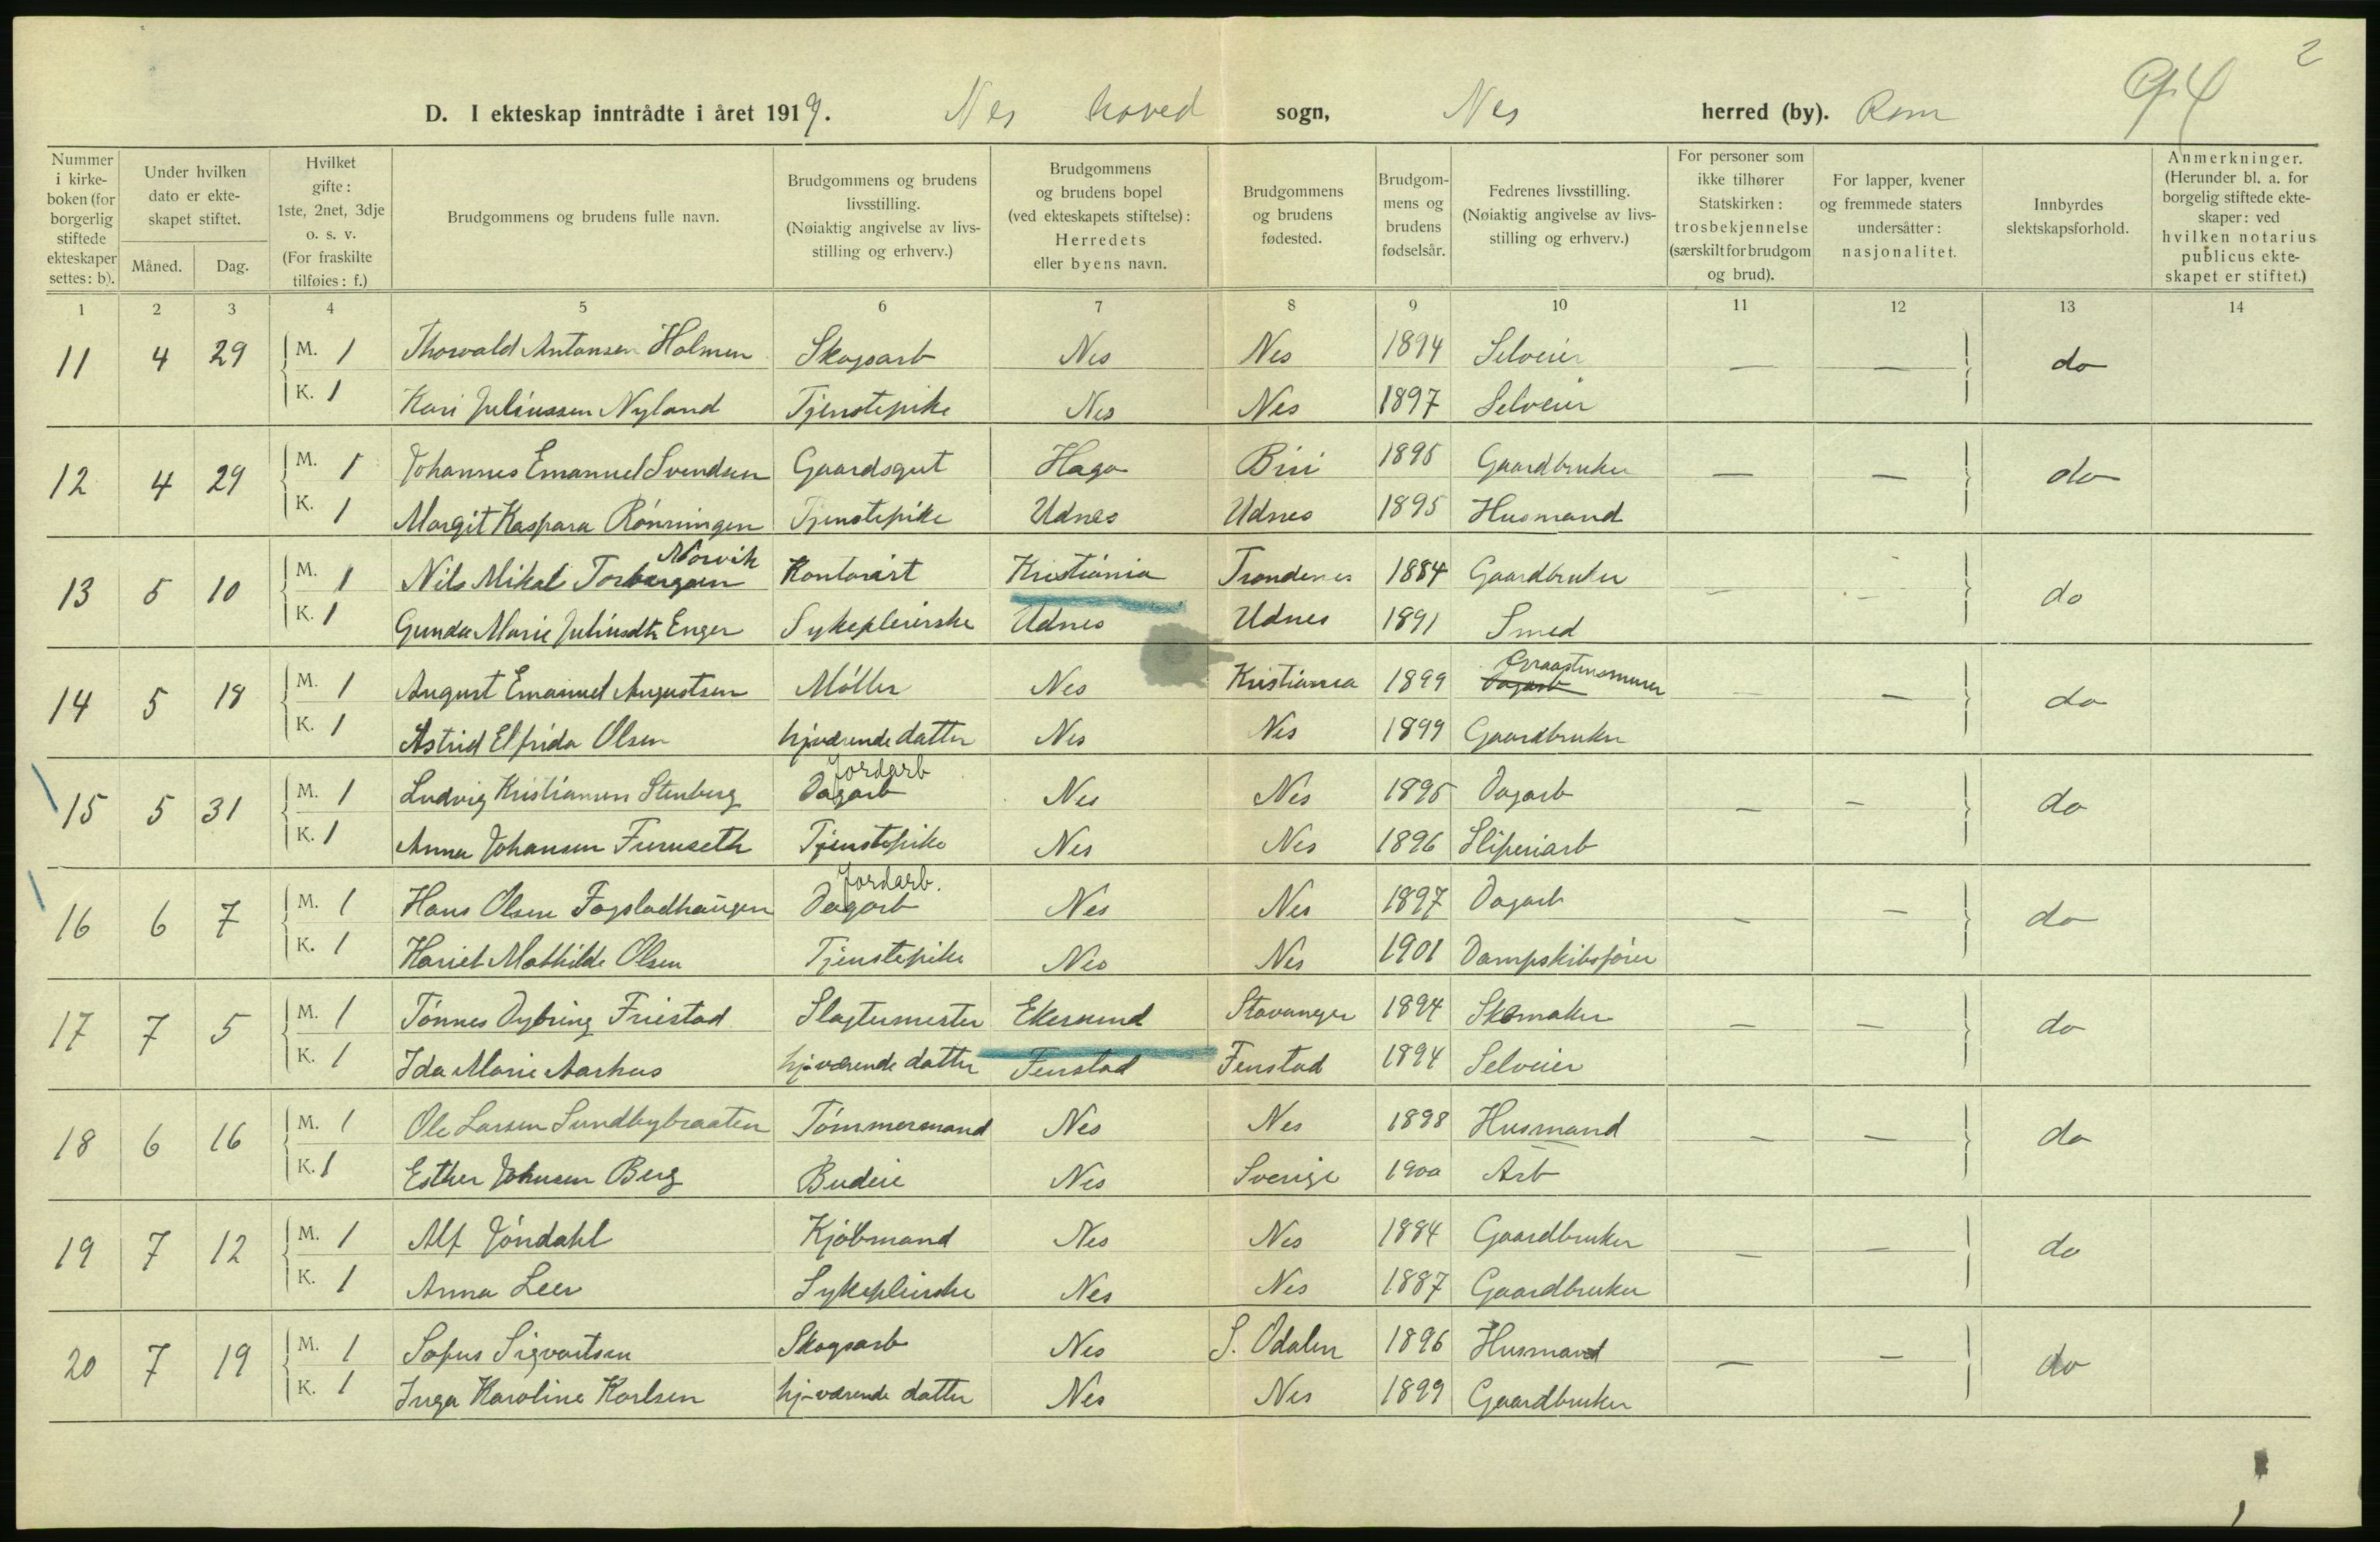 2
94
D. I ekteskap inntrådte i året 1919. Nes hoved sogn, Nes herred (by). Rom
Nummer i kirke-boken (for borgerlig stiftede ekteskaper settes: b).
Under hvilken dato er ekte-skapet stiftet.
Måned. Dag.
Hvilket gifte: 1ste, 2net, 3dje o. s. v. (For fraskilte tilføies: f.)
Brudgommens og brudens fulle navn.
Brudgommens og brudens livsstilling. (Nøiaktig angivelse av livs-stilling og erhverv.)
Brudgommens og brudens bopel (ved ekteskapets stiftelse): Herredets eller byens navn.
Brudgommens og brudens fødested.
Brudgom-mens og brudens fødselsår.
Fedrenes livsstilling. (Nøiaktig angivelse av livs-stilling og erhverv.)
For personer som ikke tilhører Statskirken: trosbekjennelse (særskilt for brudgom og brud).
For lapper, kvener og fremmede staters undersåtter: nasjonalitet.
Innbyrdes slektskapsforhold.
Anmerkninger. (Herunder bl. a. for borgelig stiftede ekte-skaper: ved hvilken notarius publicus ekte-skapet er stiftet.)
1 2 3 4 5 6 7 8 9 10 11 12 13 14
11 4 29 M. 1 Thorvald Antonsen Holmen Skogsarb Nes Nes 1894 Selveier — — do
K. 1 Kari Juliussen Nyland Tjenstepike Nes Nes 1897 Selveier
12 4 29 M. 1 Johannes Emanuel Svendsen Gaardsgut Haga Biri 1895 Gaardbruker — — do
K. 1 Margit Kaspara Rönningen Tjenstepike Udnes Udnes 1895 Husmand
Norvik
13 5 10 M. 1 Nils Mikal Torbergsen Kontorist Kristiania Trondenes 1884 Gaardbruker — — do
K. 1 Gunda Marie Juliusdtr Enger Sykepleierske Udnes Udnes 1891 Smed
14 5 18 M. 1 August Emanuel Augustsen Möller Nes Kristiania 1899 Dagarb — — do
K. 1 Astrid Elfrida Olsen hjværende datter Nes Nes 1899 Gaardbruker
Jordarb
15 5 31 M. 1 Ludvig Kristiansen Stenberg Dagarb Nes Nes 1895 Dagarb — — do
K. 1 Anna Johansen Furuseth Tjenstepike Nes Nes 1896 Sliperiarb
Jordarb.
16 6 7 M. 1 Hans Olsen Fagsladhaugen Dagarb Nes Nes 1897 Dagarb — — do
K. 1 Hariet Mathilde Olsen Tjenstepike Nes Nes 1901 Dampskibsförer
17 7 5 M. 1 Tönnes Dybing Friestad Slagtermester Ekersund Stavanger 1894 Skomaker — — do
K. 1 Ida Marie Aarhus hj-værende datter Fenstad Fenstad 1894 Selveier
18 6 16 M. 1 Ole Larsen Sundbybraaten Tömmermand Nes Nes 1898 Husmand — — do
K. 1 Esther Johnsen Berg Budeie Nes Sverige 1900 Arb
19 7 12 M. 1 Alf Jöndahl Kjöbmand Nes Nes 1884 Gaardbruker — — do
K. 1 Anna Leer Sykepleierske Nes Nes 1887 Gaardbruker
20 7 19 M. 1 Sofus Sigvartsen Skogsarb Nes S. Odalen 1896 Husmand — — do
K. 1 Inga Karoline Karlsen hj-værende datter Nes Nes 1899 Gaardbruker